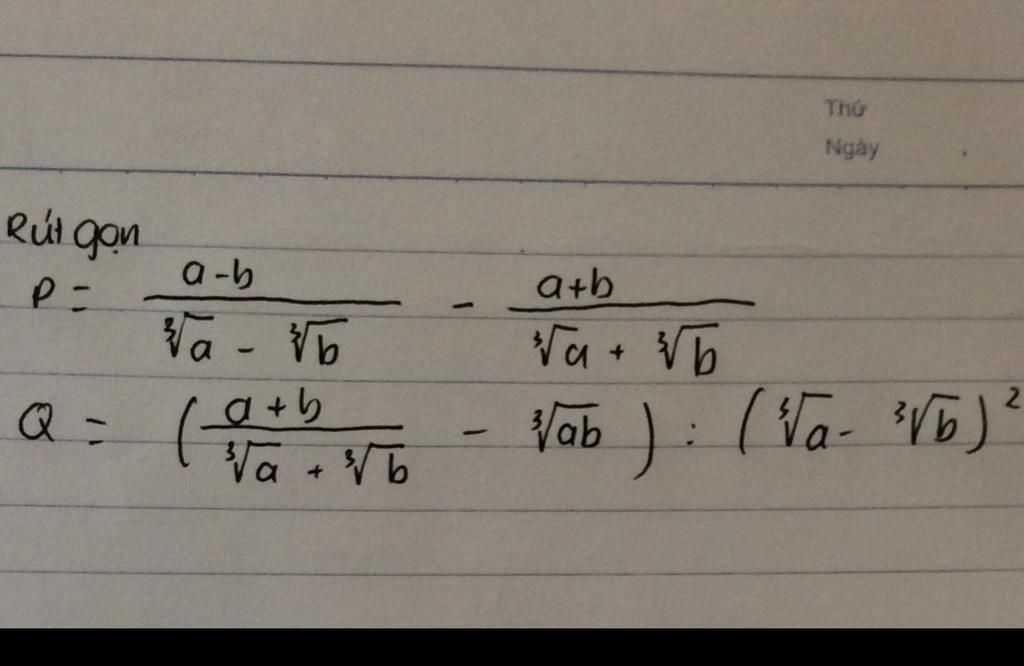 Thứ
Ngày
Rút gọn
P = \frac{a-b}{\sqrt[3]{a} - \sqrt[3]{b}} - \frac{a+b}{\sqrt[3]{a} + \sqrt[3]{b}}
Q = \left(\frac{a+b}{\sqrt[3]{a} + \sqrt[3]{b}} - \sqrt[3]{ab}\right) : \left(\sqrt[3]{a} - \sqrt[3]{b}\right)^2